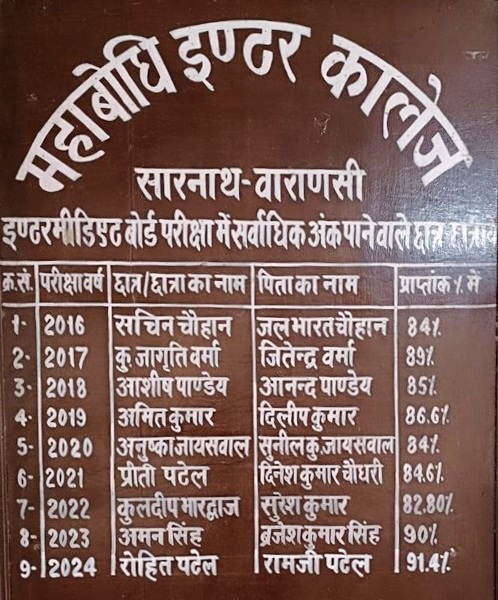 महाबोधि इण्टर कालेज
सारनाथ-वाराणसी
इण्टरमीडिएट बोर्ड परीक्षा में सर्वाधिक अंक पाने वाले छात्र
क्र.सं. परीक्षा वर्ष छात्र/छात्रा का नाम पिता का नाम प्राप्तांक % में
1- 2016 सचिन चौहान जल भारत चौहान 84%
2- 2017 कु जागृति वर्मा जितेन्द्र वर्मा 89%
3- 2018 आशीष पाण्डेय आनन्द पाण्डेय 85%
4- 2019 अमित कुमार दिलीप कुमार 86.6%
5- 2020 अनुष्का जायसवाल सुनील कु. जायसवाल 84%
6- 2021 प्रीती पटेल दिनेश कुमार चौधरी 84.6%
7- 2022 कुलदीप भारद्वाज सुरेश कुमार 82.80%
8- 2023 अमन सिंह ब्रजेश कुमार सिंह 90%
9- 2024 रोहित पटेल रामजी पटेल 91.4%